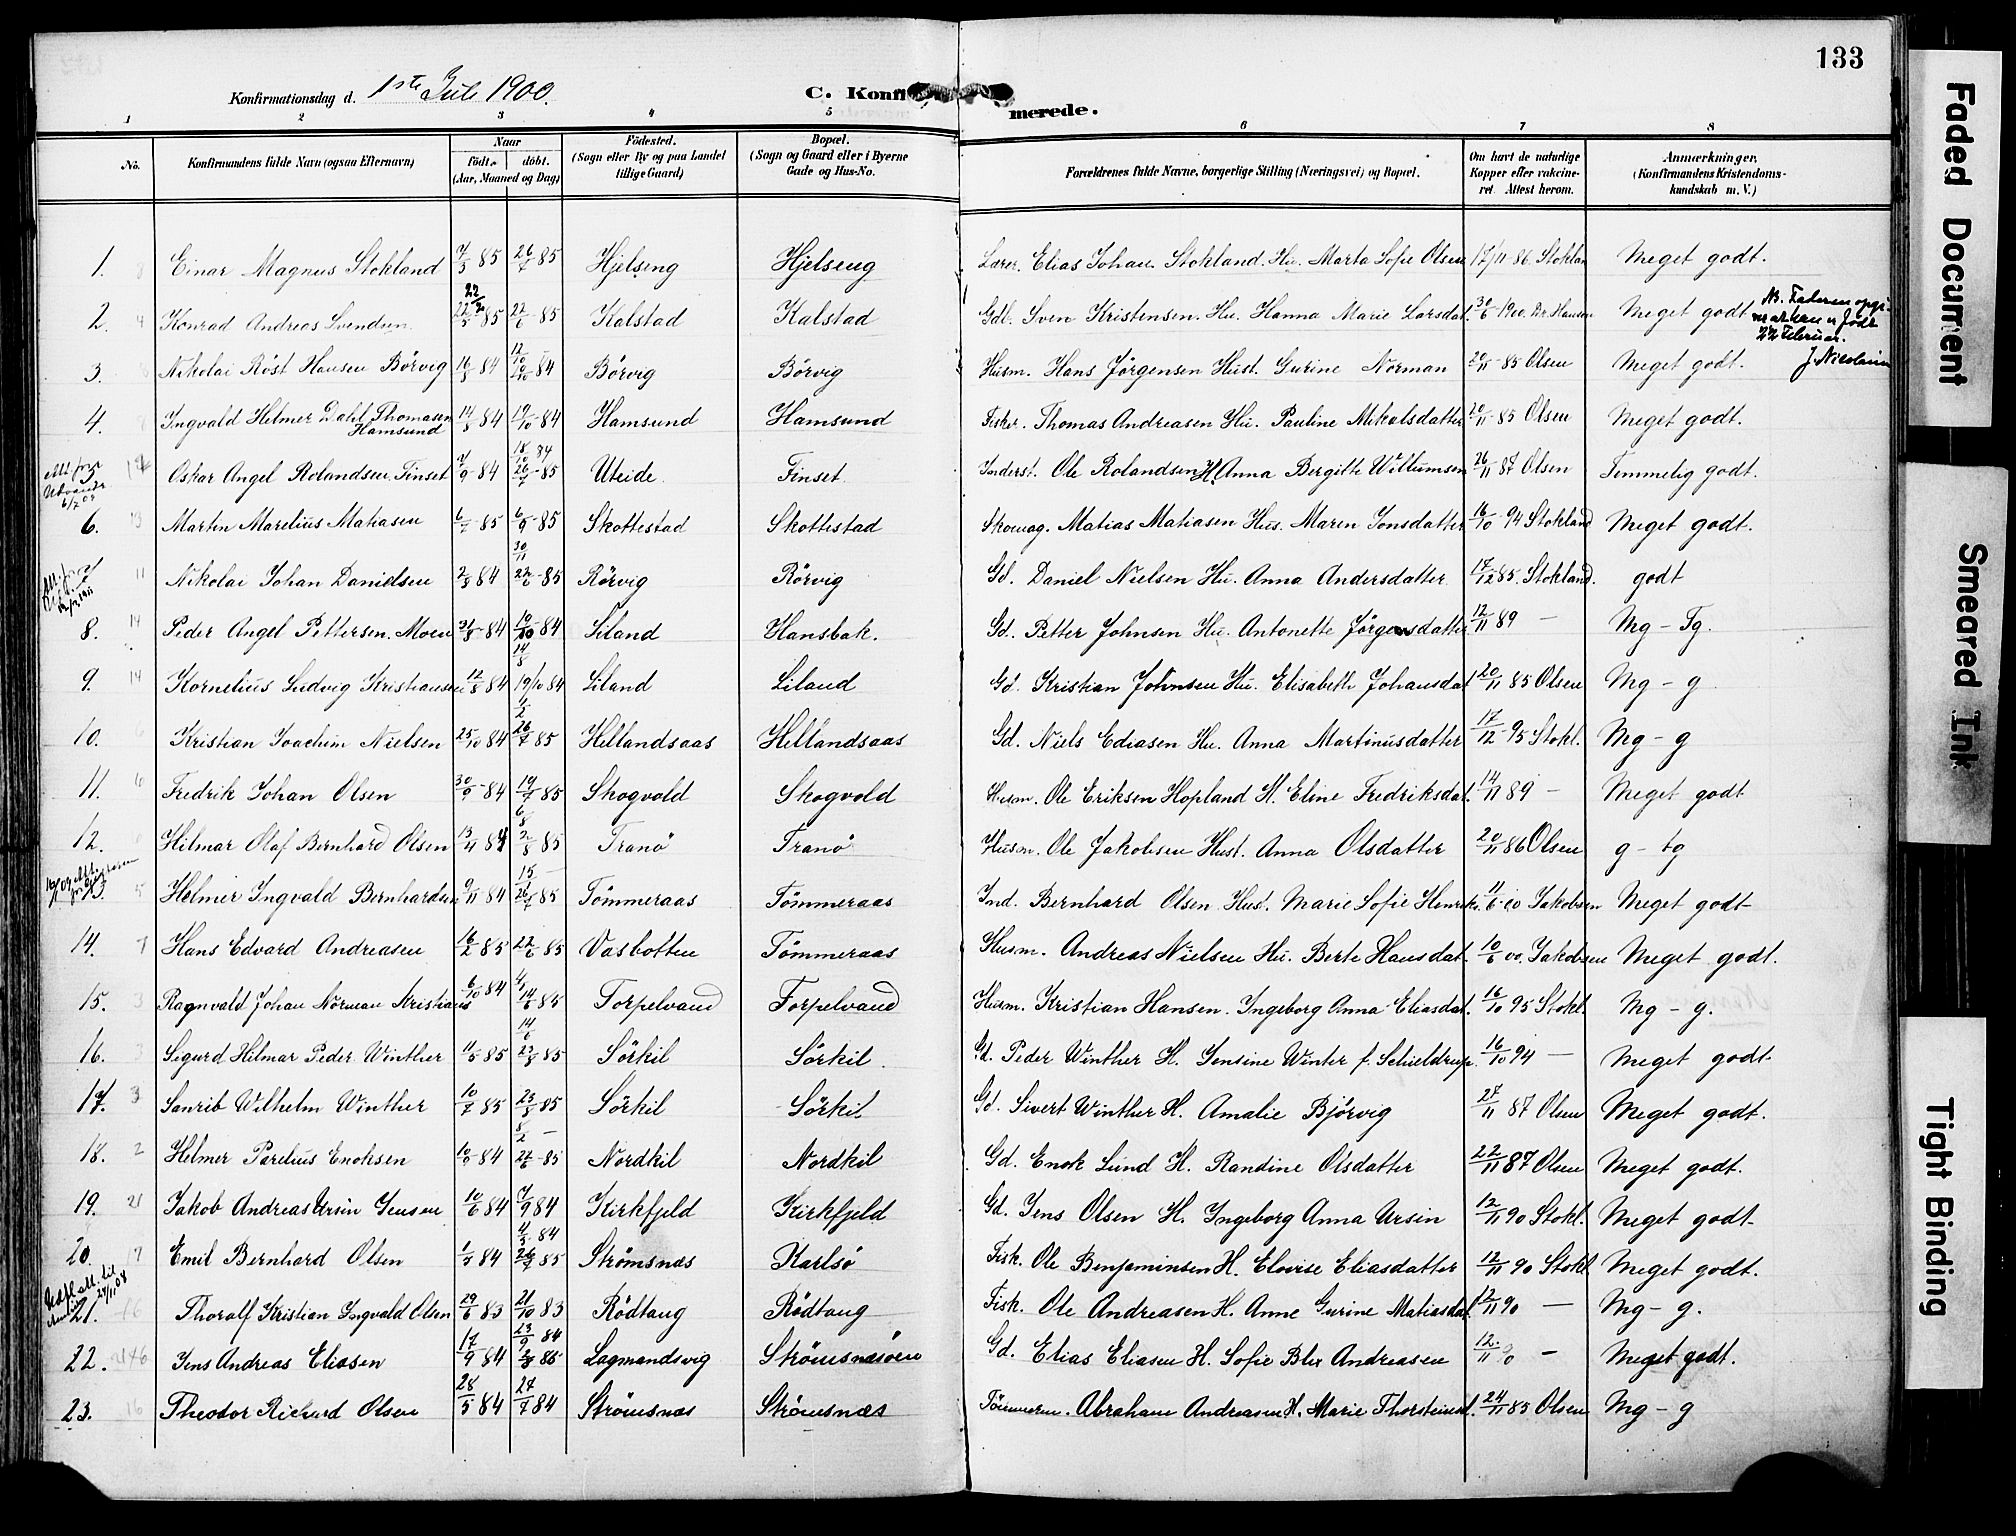 133
Konfirmationsdag d. 1ste Juli 1900.
C. Konfi merede.
1 2 3 4 5 6 7 8
No. Konfirmandens fulde Navn (ogsaa Efternavn) Naar født. døbt. (Aar, Maaned og Dag) Fødested. (Sogn eller By og paa Landet tillige Gaard) Bopæl. (Sogn og Gaard eller i Byerne Gade og Hus-No. Forældrenes fulde Navne, borgerlige Stilling (Næringsvei) og Bopæl. Om havt de naturlige Kopper eller vakcineret. Attest herom. Anmærkninger, (Konfirmandens Kristendomskundskab m. V.)
1. Einar Magnus Stokland 7/5 85 26/7 85 Hjelseng Hjelseng Lærer. Elias Johan Stokland. Hu. Marta Sofie Olsen 17/11 86. Stoklan Meget godt.
2. Konrad Andreas Svendsen 22/2 22/5 85 22/6 85 Kalstad Kalstad Gdb. Sven Kristensen. Hu. Hanna Marie Larsdat. 30/6 1900. Dr. Hansen Meget godt NB. Faderen opgi- er at han er født 22 Februar. J. Nicolaisen
3. Nikolai Röst Hansen Börvig 10/5 84 12/10 84 Börvig Börvig Husm. Hans Jörgensen Hust. Gurine Norman 20/11 85 Olsen Meget godt.
4. Ingvald Helmer Dahl Thomasen Hamsund 14/5 84 19/10 84 Hamsund Hamsund Fisker. Thomas Andreasen Hu. Pauline Nikolsdatter 20/11 85 Olsen Meget godt.
Oskar Angel Rolandsen Finset 7/9 84 18/10 84 26/7 85 Uteide Finset Inderst. Ole Rolandsen H. Anna Bergitte Willumsen 26/11 87 Olsen Temmelig godt.
6. Martin Marelius Matiasen 6/7 85 6/9 85 Skottestad Skottestad Skomag. Matias Matiasen Hus. Maren Jonsdatter 16/10 94 Stokland Meget godt.
7 Nikolai Johan Danielsen 2/9 84 30/11 22/6 85 Rörvig Rörvig Gd. Daniel Nielsen Hu. Anna Andersdatter 17/12 85. Stokland. godt
8. Peder Angel Pettersen. Moen 31/8 84 19/10 84 Liland Hansbak. Gd. Petter Johnsen Hu. Antonette Jörgensdatter 12/11 89 — Mg - Tg.
9. Kornelius Ludvig Kristiansen 12/8 84 14/8 19/10 84 Liland Liland Gd. Kristian Johnsen Hu. Elisabeth Johansdat 20/11 85 Olsen Mg - g
10. Kristian Joachim Nielsen 25/10 84 1/2 26/7 85 Hellandsaas Hellandsaas Gd. Niels Ediasen Hu. Anna Martinusdatter 17/12 95 Stokl. Mg - g
11. Fredrik Johan Olsen 30/9 84 19/7 85 Skogvold Skogvold Husm. Ole Eriksen Hopland H. Eline Fredriksdat. 14/11 89 — Meget godt
12. Hilmar Olaf Bernhard Olsen 13/4 84 6/8 2/8 85 Tranö Tranö Husm. Ole Jakobsen Hust. Anna Olsdatter 20/11 86 Olsen g - tg
13. Helmer Ingvald Bernhardsen 9/11 84 26/7 85 Tömmeraas Tömmeraas Ind. Bernhard Olsen Hust. Marie Sofie Henrik. 11/6 00 Jakobsen Meget godt
14. Hans Edvard Andreasen 16/2 85 22/6 85 Vasbotten Tömmeraas Husm. Andreas Nielsen Hu. Berte Hansdat. 10/6 00. Jakobsen Meget godt.
15. Ragnvald Johan Norman Kristians 6/10 84 14/6 85 Forpelvand Forpelvand Husm. Kristian Hansen. Ingeborg Anna Eliasdat. 16/10 95 Stokl. Mg - g.
16. Sigurd Hilmar Peder Winther 11/5 85 14/6 23/8 85 Sörkil Sörkil Gd. Peder Winther H. Jensine Winter f. Schieldrup. 16/10 94 — Meget godt
17. Sanrib Wilhelm Winther 10/7 85 23/8 85 Sörkil Sörkil Gd. Sivert Winther H. Amalie Björvig 27/11 87 Olsen Meget godt.
18. Helmer Parelius Enoksen 10/9 84 8/2 21/6 85 Nordkil Nordkil Gd. Enok Lund H. Randine Olsdatter 22/11 87 Olsen Meget godt.
19. Jakob Andreas Ursin Jensen 10/6 84 7/9 84 Kirkfjeld Kirkfjeld Gd. Jens Olsen H. Ingeborg Anna Ursin 12/11 90 Stokl. Meget godt
20. Emil Bernhard Olsen 1/5 84 4/5 84 26/7 85 Strömsnæs Karlsö Fisk. Ole Benjaminsen H. Elovise Eliasdatter 12/11 90 Stokl. Meget godt.
21. Thoralf Kristian Ingvald Olsen 29/6 83 21/10 83 Rödtang Rödtang Fisk. Ole Andreasen H. Anne Gurine Matiasdat. 12/11 90 — Mg - g.
22. Jens Andreas Eliasen 17/9 84 23/9 84 85 Lagmandsvig Strömsnæsöen Gd. Elias Eliasen H. Sofie Blix Andreasen 12/11 — Meget godt.
23. Theodor Richard Olsen 28/5 84 27/7 84 Strömsnæs Strömsnæs Tömmerm. Abraham Andreasen H. Marie Thorsteinsd. 24/11 85 Olsen Mg - g
Faded Document
Smeared Ink
Tight Binding